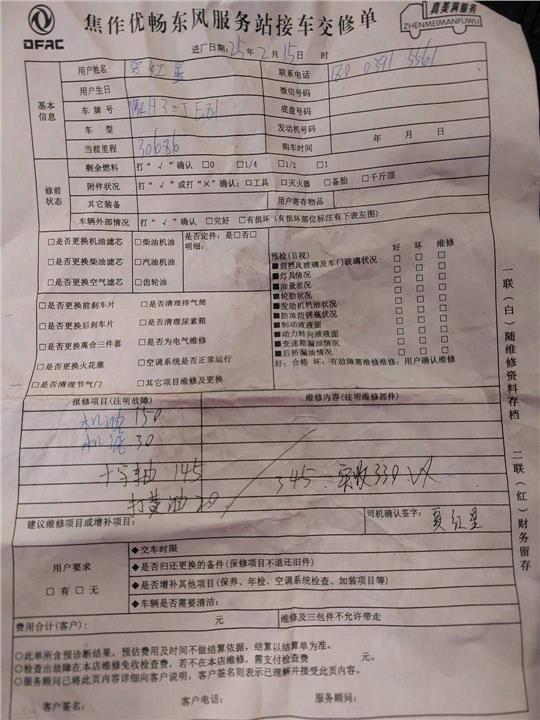 DFAC
焦作优畅东风服务站接车交修单
真美满服务
ZHENMEIMANFUWU
进厂日期:25年2月15日 时
基本信息
用户姓名 夏红星
联系电话 130 0391 5561
用户生日
微信号码
车牌号
底盘号码
车型
发动机号码
当前里程 30686
购车时间 年 月 日
修前状态
剩余燃料 打“√”确认 □0 □1/4 □1/2 □1
附件状况 打“√”或打“×”确认:□工具 □灭火器 □备胎 □千斤顶
其它装备
用户寄存物品
车辆外部情况 打“√”确认 □完好 □有损坏(有损坏部位标注有下表左图)
□是否更换机油滤芯 □柴油机油
□是否更换柴油滤芯 □汽油机油
□是否更换空气滤芯 □齿轮油
是否定件:是□否□
明细:
□是否更换前刹车片 □是否清理排气筒
□是否更换后刹车片 □是否清理尿素箱
□是否更换离合三件套 □是否为电气维修
□是否更换火花塞 □空调系统是否正常运行
□是否清理节气门 □其它项目维修及更换
预检(目视) 好 坏 维修
■前挡风玻璃及车门玻璃状况 □ □ □
■灯具情况 □ □ □
■油量状况 □ □ □
■轮胎状况 □ □ □
■发动机机油状况 □ □ □
■防冻防锈瓶状况 □ □ □
■制动液液面 □ □ □
■动力转向液液面 □ □ □
■变速箱漏油情况 □ □ □
■后桥漏油情况 □ □ □
好:合格 坏:有故障需维修维修:用户确认维修
报修项目(注明故障)
维修内容(注明维修部件)
机油 150
机滤 30
十字轴 145
打黄油 20
345. 实收330
建议维修项目或增补项目:
司机确认签字: 夏红星
用户要求
□有 □无
◆交车时限
◆是否归还更换的备件(保修项目不退还旧件)
◆是否增补其他项目(保养、年检、空调系统检查、加装项目等)
◆车辆是否需要清洁:
费用合计(客户): 元
维修及三包件不允许带走
○此单所含预诊断结果,预估费用及时间不做结算依据,结算以结算单为准。
○检查出故障在本店维修免收检查费,若不在本店维修,需支付检查费 元。
○服务顾问已将此页内容详细向客户说明,客户签名则表示已理解并接受此页内容。
客户签名: 客户电话: 服务顾问:
一联(白)随维修资料存档
二联(红)财务留存